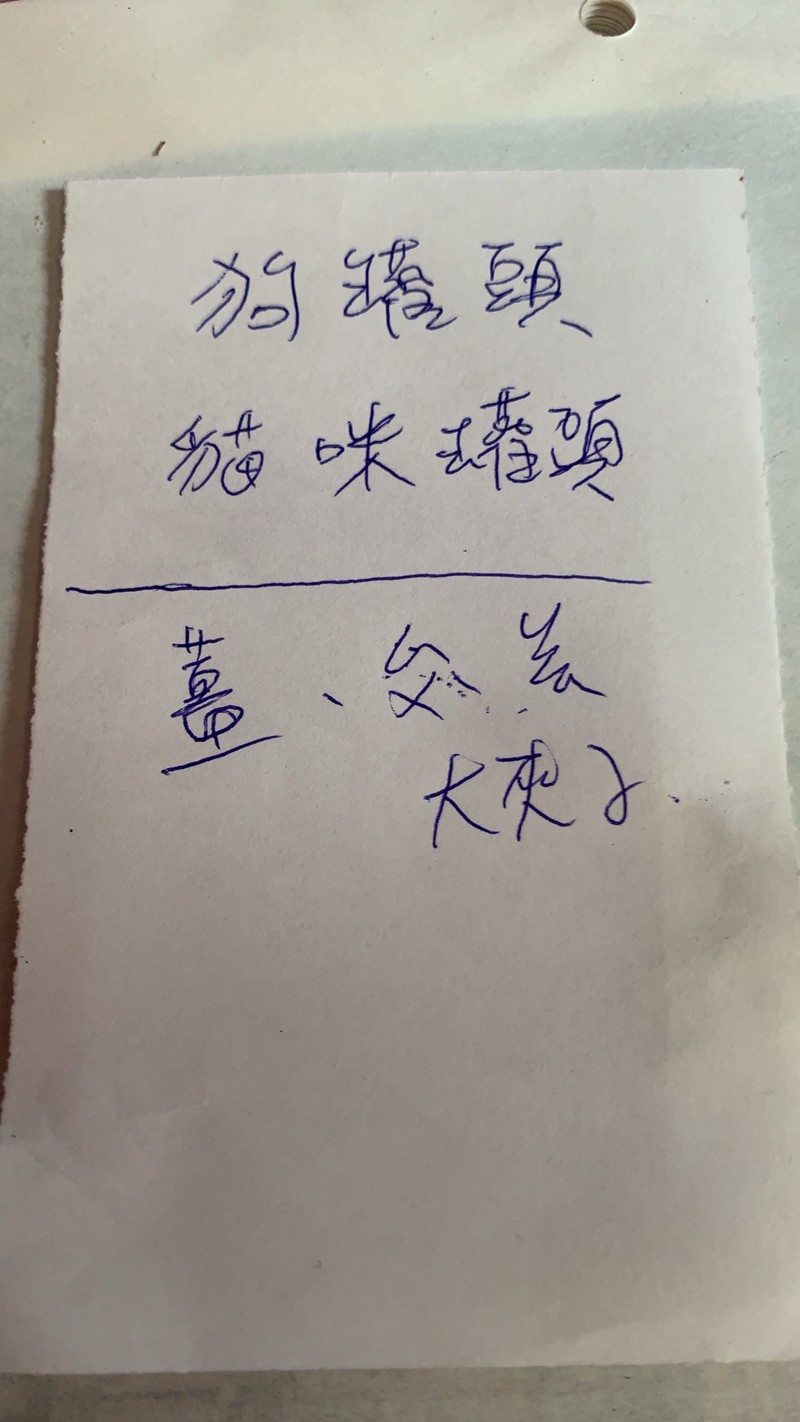 狗罐頭
貓咪罐頭
薑、
大夾子.